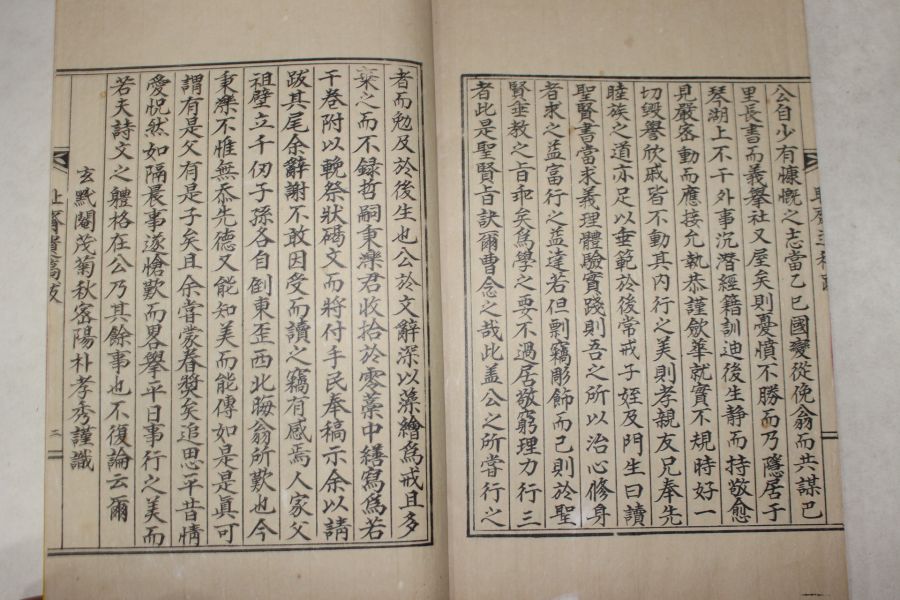 公自少有慷慨之志當乙巳國變從俛翁而共謀巴
里長書而義擧社又屋矣則憂憤不勝而乃隱居于
琴湖上不干外事沉潛經籍訓迪後生静而持敬愈
見嚴密動而應接允執恭謹斂華就實不規時好一
切毁譽欣戚皆不動其内行之美則孝親友兄奉先
睦族之道亦足以垂範於後常戒子姪及門生曰讀
聖賢書當求義理體驗實踐則吾之所以治心修身
者求之益富行之益達若但剽竊彫飾而已則於聖
賢垂教之旨乖矣爲學之要不過居敬窮理力行三
者此是聖賢旨訣爾曹念之哉此盖公之所嘗行之
者而勉及於後生也公於文辭深以藻繪爲戒且多
棄之而不録哲嗣秉濼君收拾於零藁中繕寫爲若
干卷附以輓祭狀碣文而將付手民奉稿示余以請
跋其尾余辭謝不敢因受而讀之竊有感焉人家父
祖壁立千仞子孫各自倒東歪西北晦翁所歎也今
秉濼不惟無忝先德又能知美而能傳如是是眞可
謂有是父有是子矣且余嘗蒙眷奬矣追思平昔情
愛怳然如隔晨事遂愴歎而畧擧平日事行之美而
若夫詩文之軆格在公乃其餘事也不復論云爾
玄黓閹茂菊秋密陽朴孝秀謹識
三